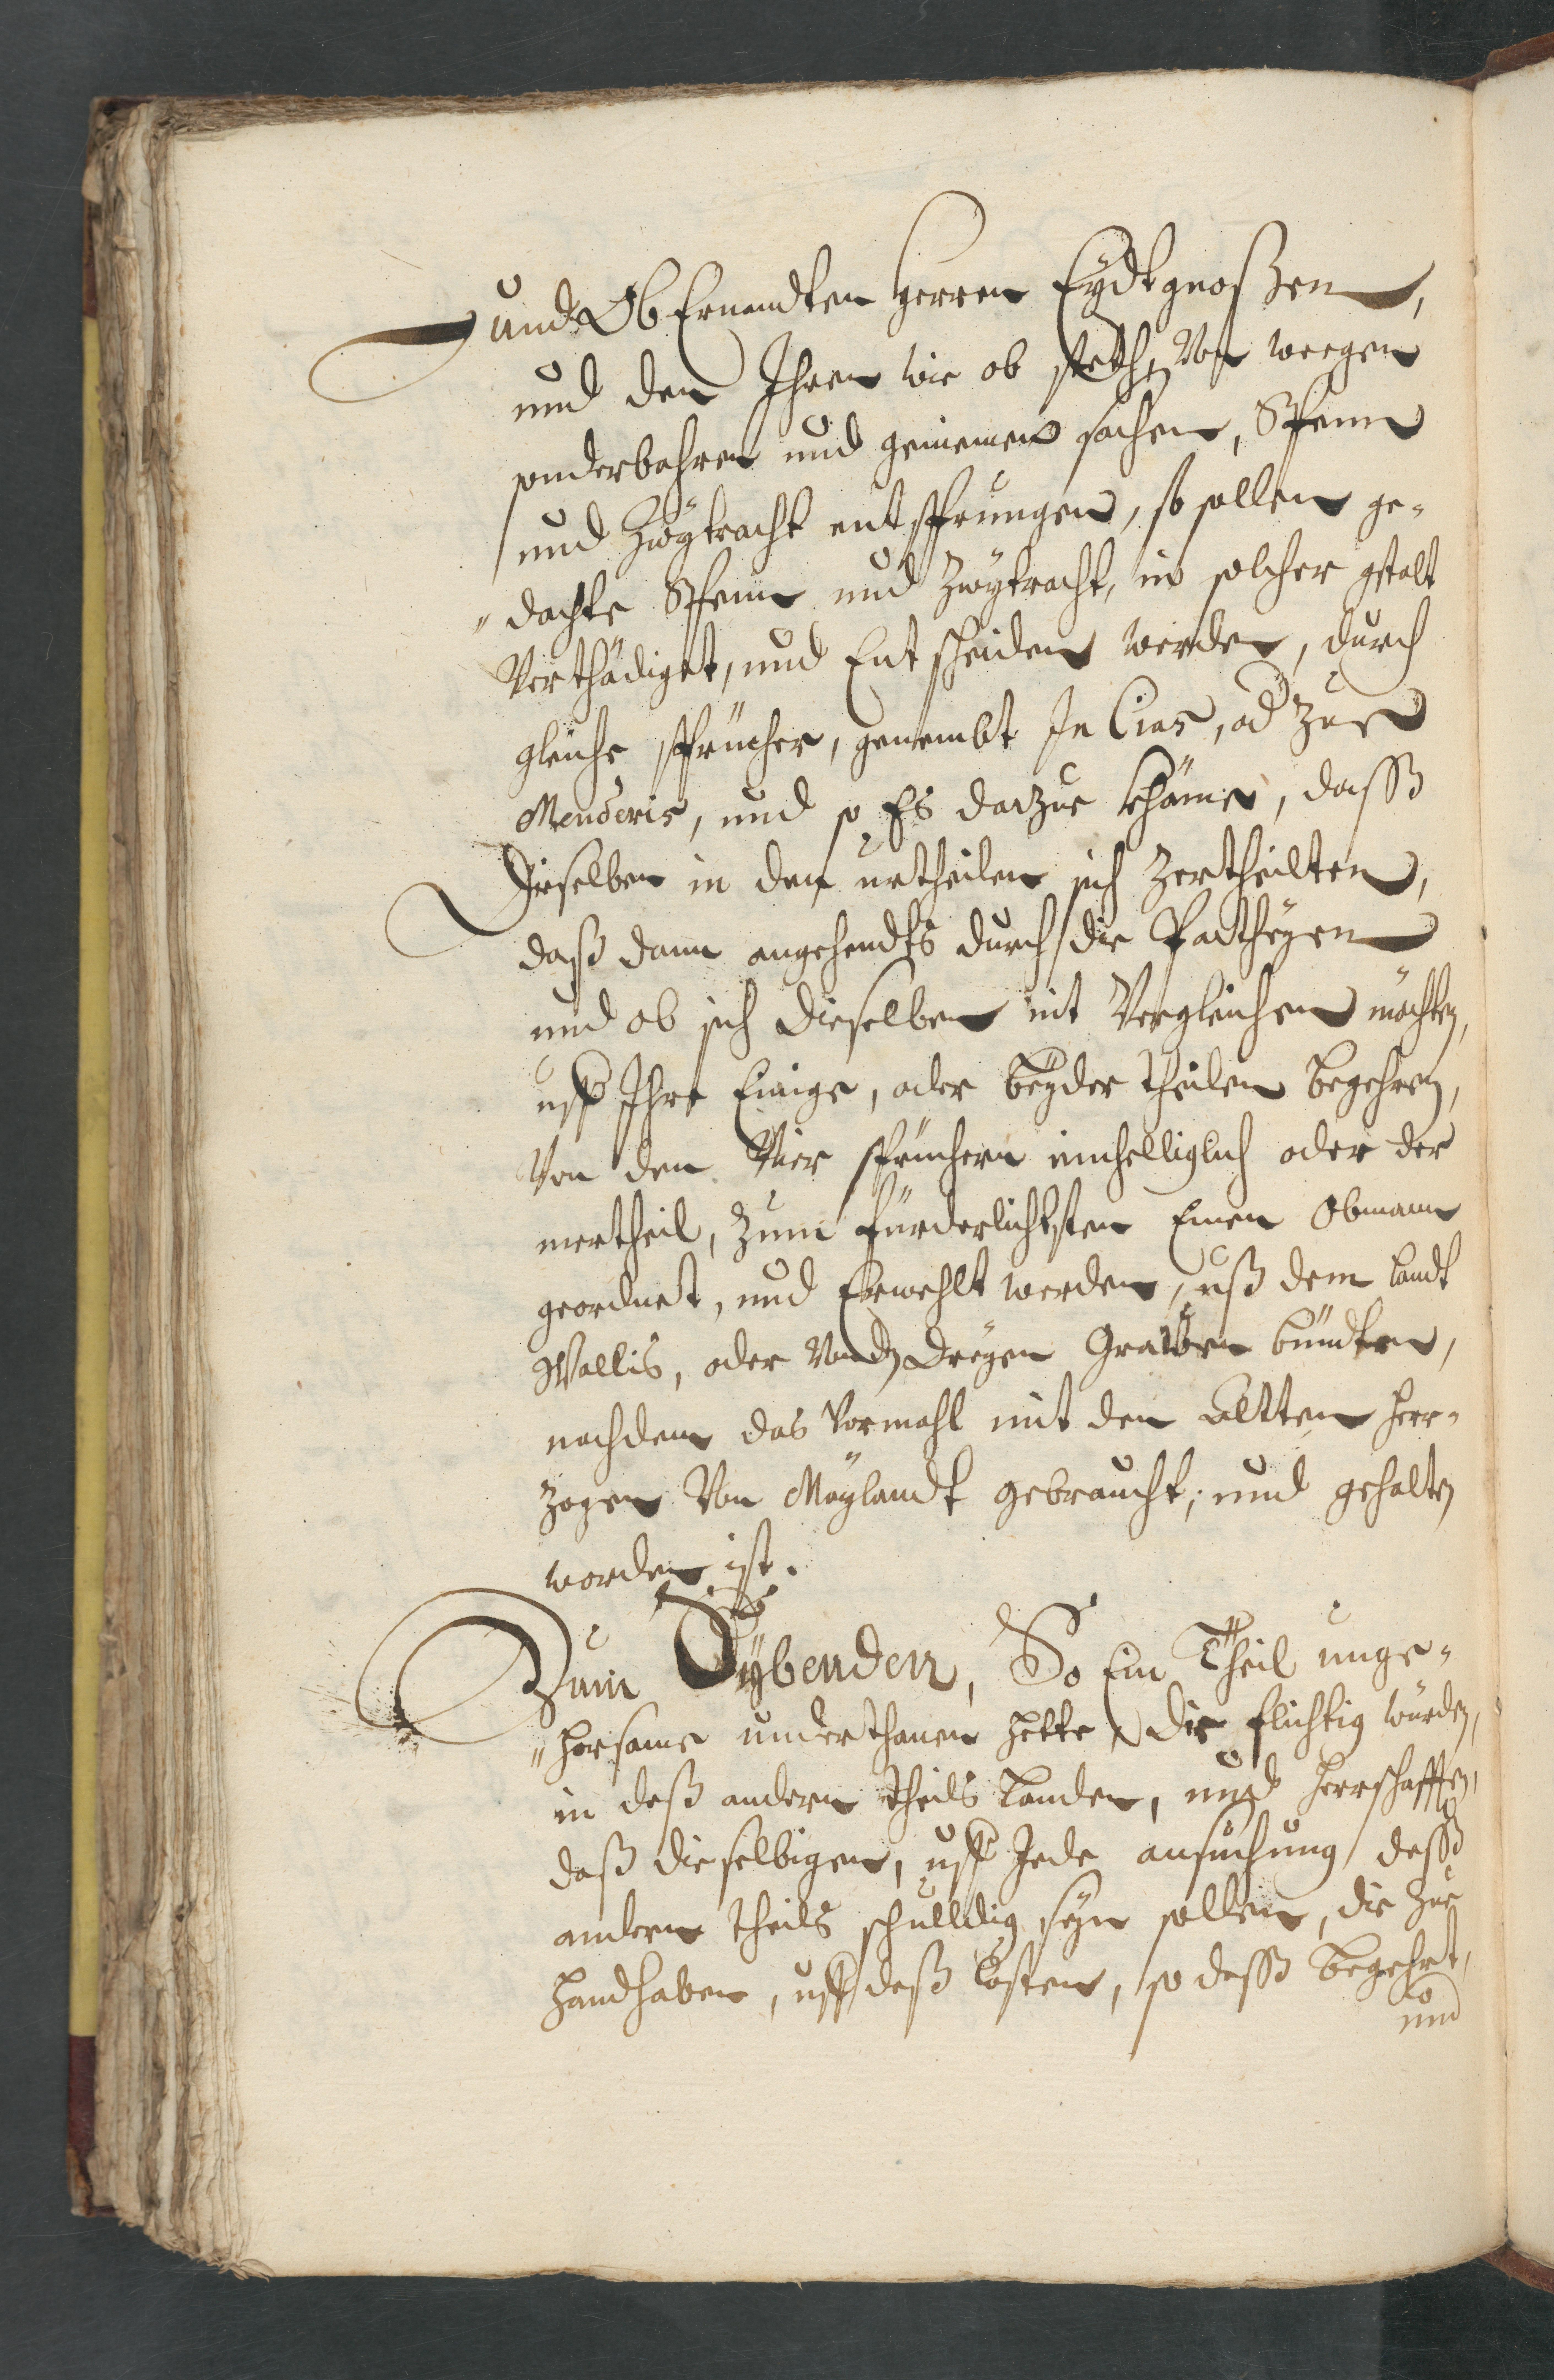 und Ob Ernandten Herren Eydtgnoßen,
und den Ihren wie ob steth, Von weegen
sonderbahren und gemeinen sachen, Spenn
und Zwytracht entsprungen, so sollen ge-
dachte Spenn und Zwytracht, in solcher gstalt
Verthädiget, und Entscheiden werden, durch
gleiche sprücher, genembt In Cias, od Zue
Menderis, und so Es darzue khäme, dasß
dieselben in den urtheilen sich Zertheilten,
daß dann angehendts durch die Partheyen
und ob sich dieselben nit Vergleichen möchten,
uff Ihre Einige, oder beyder theilen begehren,
Von den Vier sprüchern einhelliglich oder der
mertheil, Zum fürderlichsten Einen Obmann
geordnet, und Erwehlt werden, uß dem landt
Wallis, oder Von dn dreyen Grawen bündten,
nachdem das Vormahl mit den Altten Her-
zogen Von Meylandt gebraucht, und gehalten
worden ist.
Zum Sybenden, So Ein Theil unge-
horsame underthanen hette, Die flichtig wurden,
in deß andern theils Landen, und Herrschafften,
daß dieselbigen, uff Jede ansuchung desß
andern theils schulldig seyn sollen, die Zue
handhaben, uff deß Costen, so desß begehrt,
und